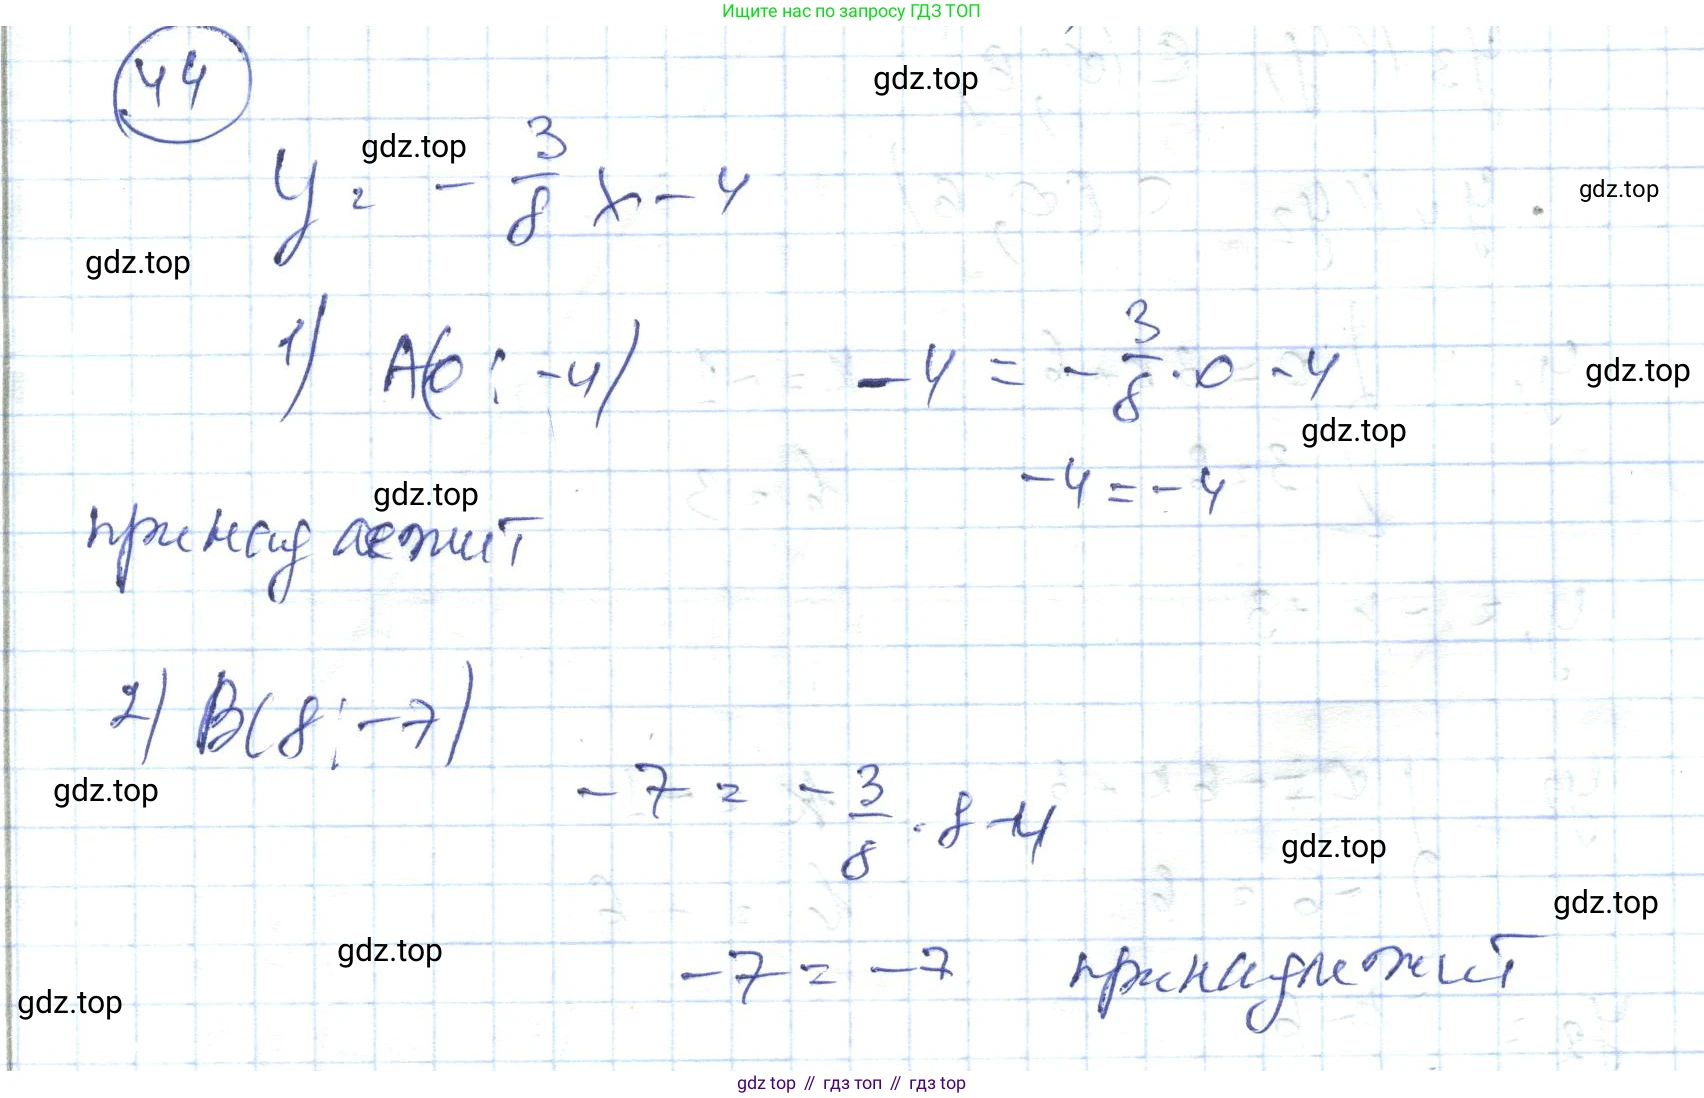 Ищите нас по запросу ГДЗ ТОП
44
gdz.top
gdz.top
y = - 3/8 x - 4
gdz.top
gdz.top
1) A(0; -4) -4 = - 3/8 · 0 - 4
gdz.top
gdz.top
-4 = -4
gdz.top
принадлежит
2) B(8; -7)
gdz.top
-7 = - 3/8 · 8 - 4
gdz.top
gdz.top
gdz.top
-7 = -7 принадлежит
gdz.top
gdz top // гдз топ // gdz top